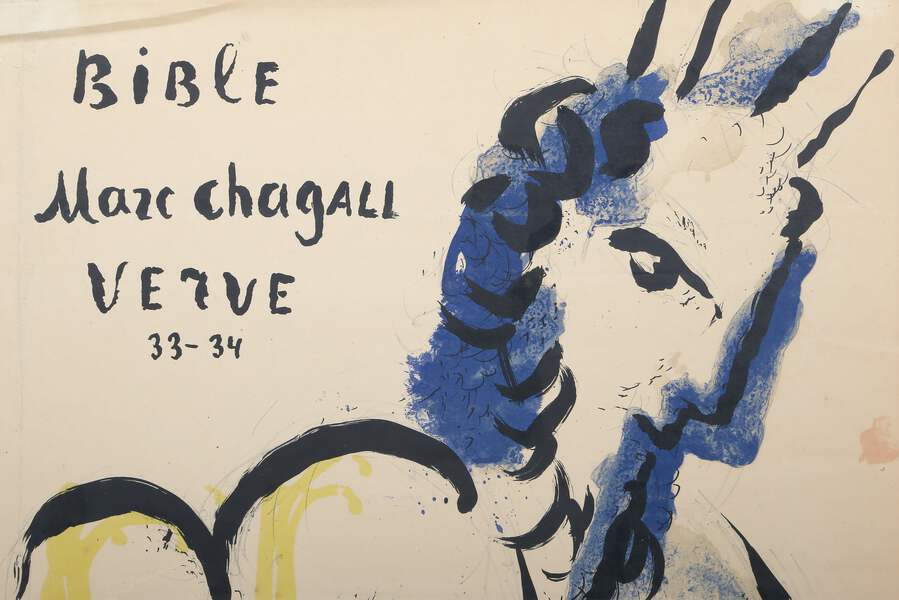 BiBlE
Marc chagALL
VErVE
33-34